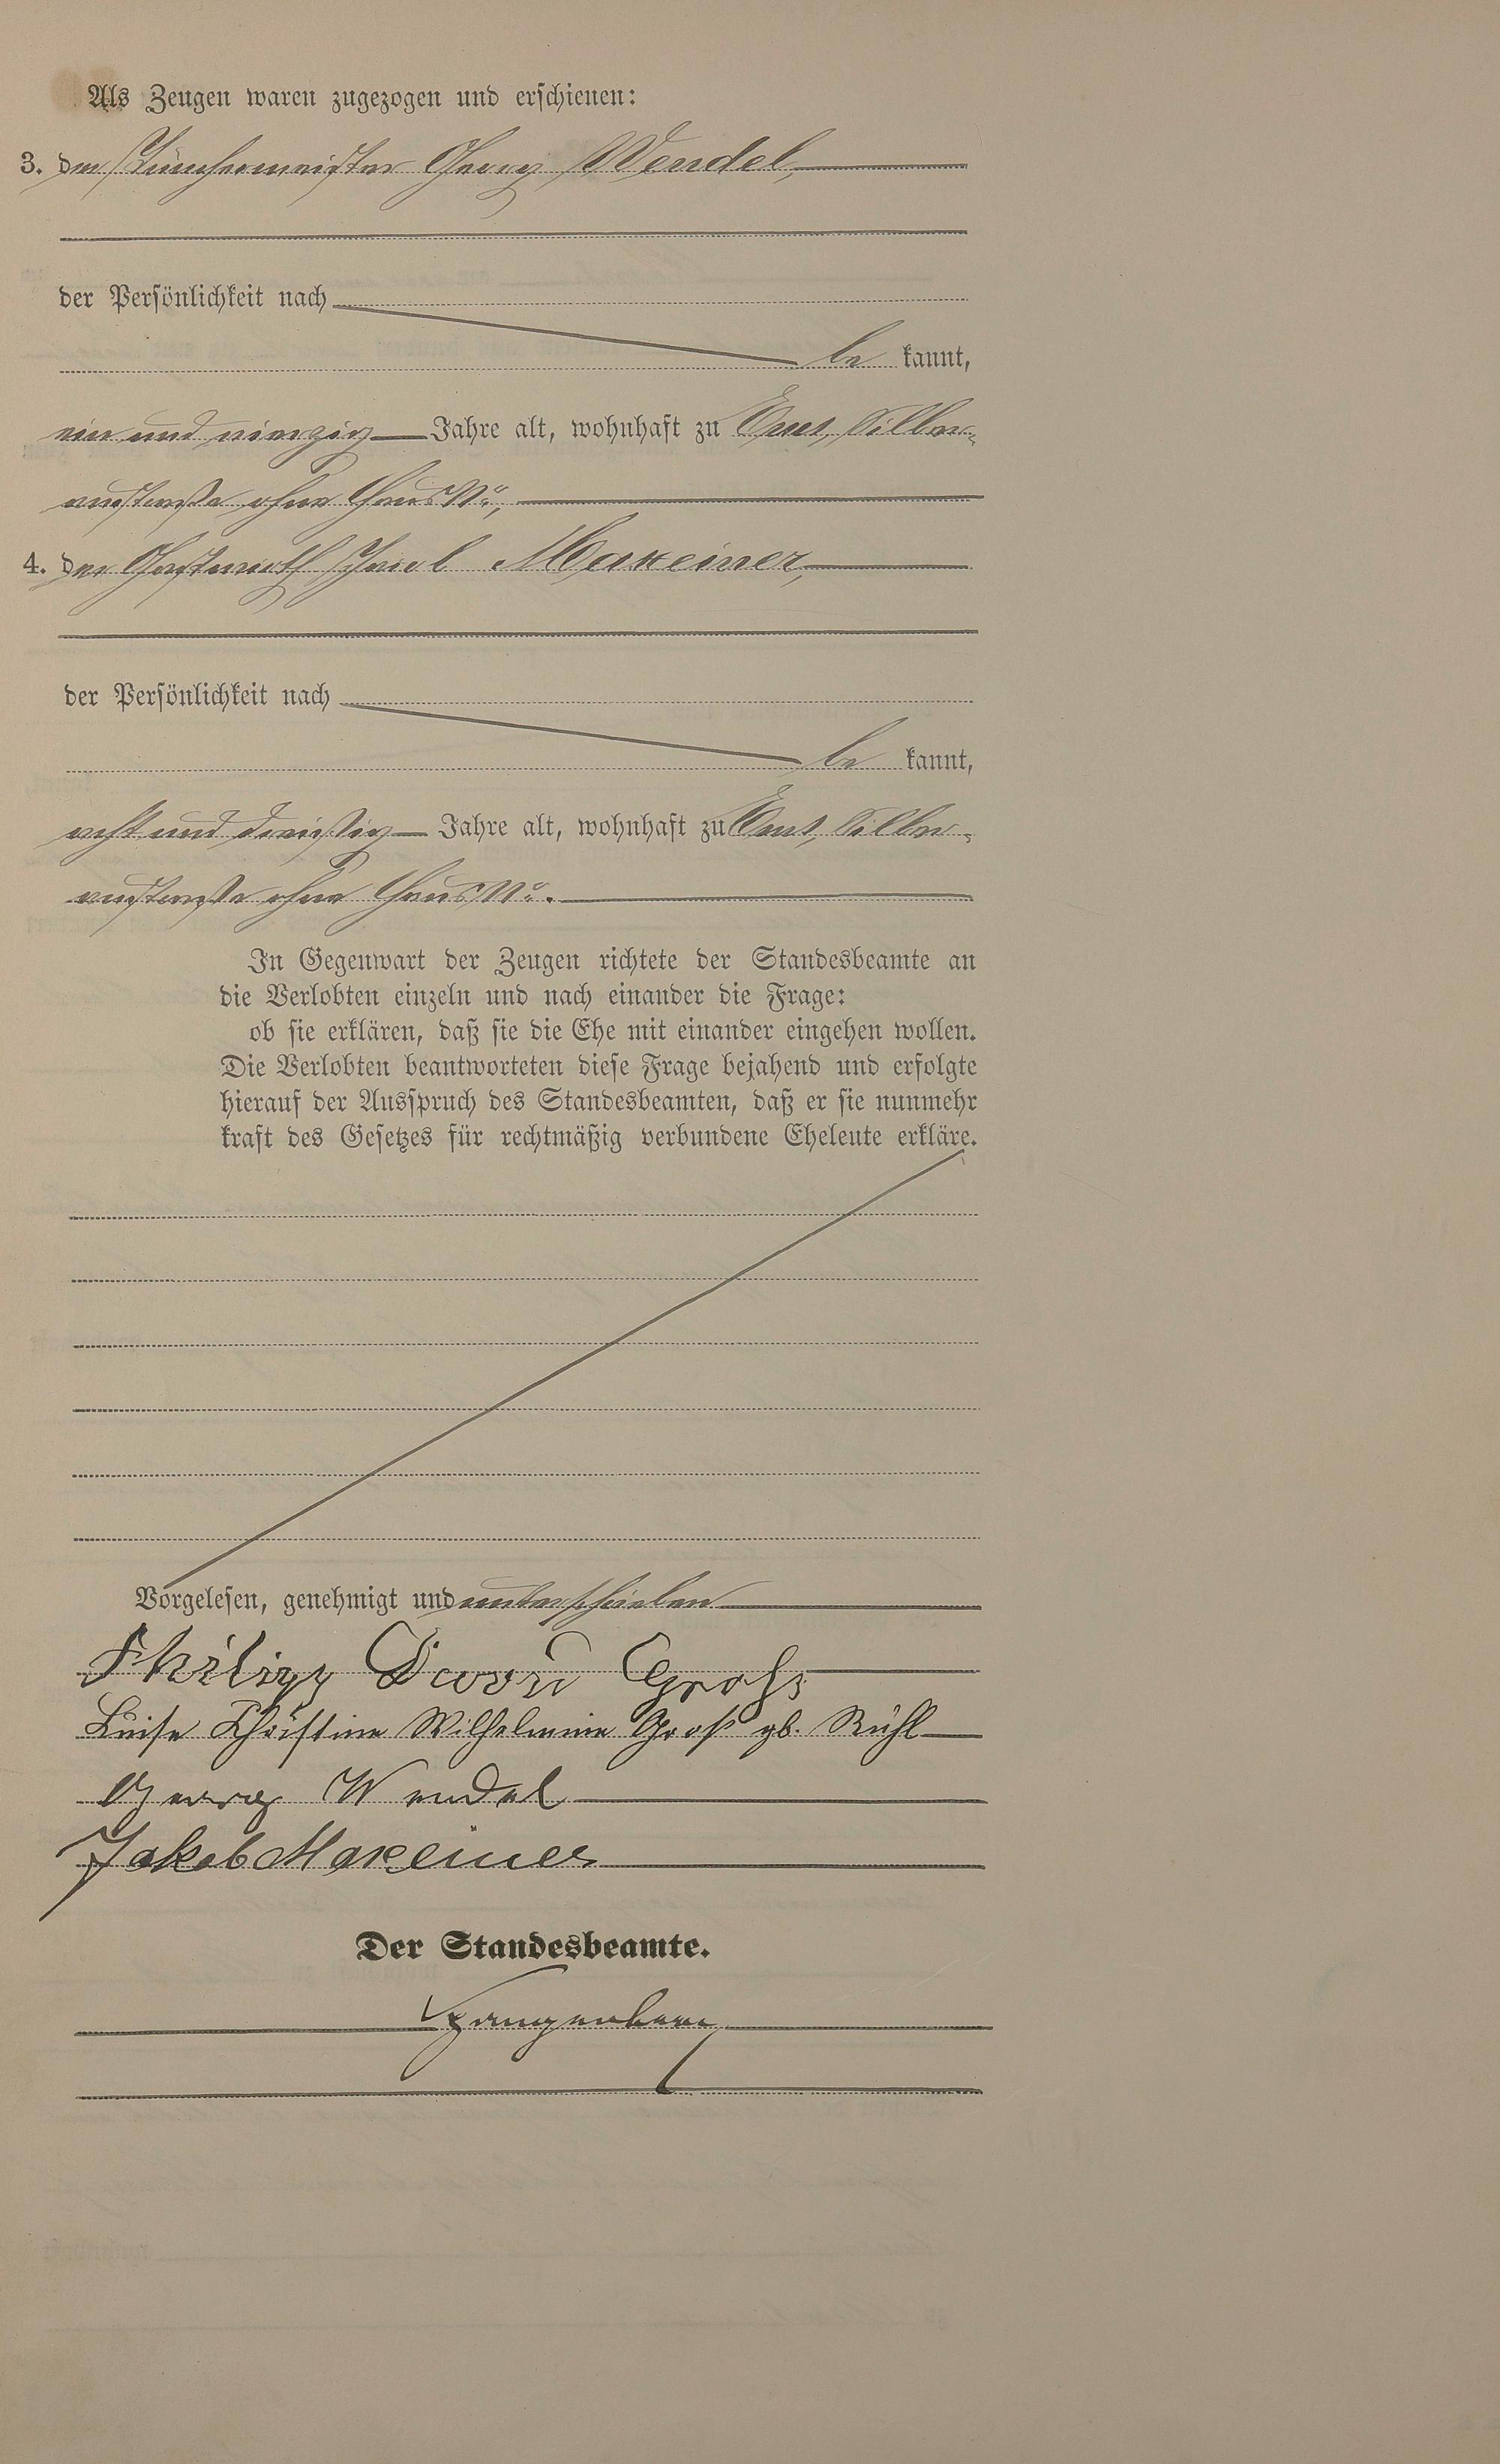 Als Zeugen waren zugezogen und erschienen:
3. der Tünchermeister Georg Wendel,
der Persönlichkeit nach
be kannt,
ein und vierzig Jahre alt, wohnhaft zu Ems, Silber-
austraße ohne Haus No,
4. der Gastwirth Maxeiner,
der Persönlichkeit nach
be kannt,
acht und dreißig Jahre alt, wohnhaft zu Ems, Silber-
austraße ohne Haus No.
In Gegenwart der Zeugen richtete der Standesbeamte an
die Verlobten einzeln und nach einander die Frage:
ob sie erklären, daß sie die Ehe mit einander eingehen wollen.
Die Verlobten beantworteten diese Frage bejahend und erfolgte
hierauf der Ausspruch des Standesbeamten, daß er sie nunmehr
kraft des Gesetzes für rechtmäßig verbundene Eheleute erkläre.
Vorgelesen, genehmigt und unterschrieben
Philipp David Groß
Luise Christine Wilhelmine Groß gb. Rühl
Georg Wendel
Jakob Maxeiner
Der Standesbeamte.